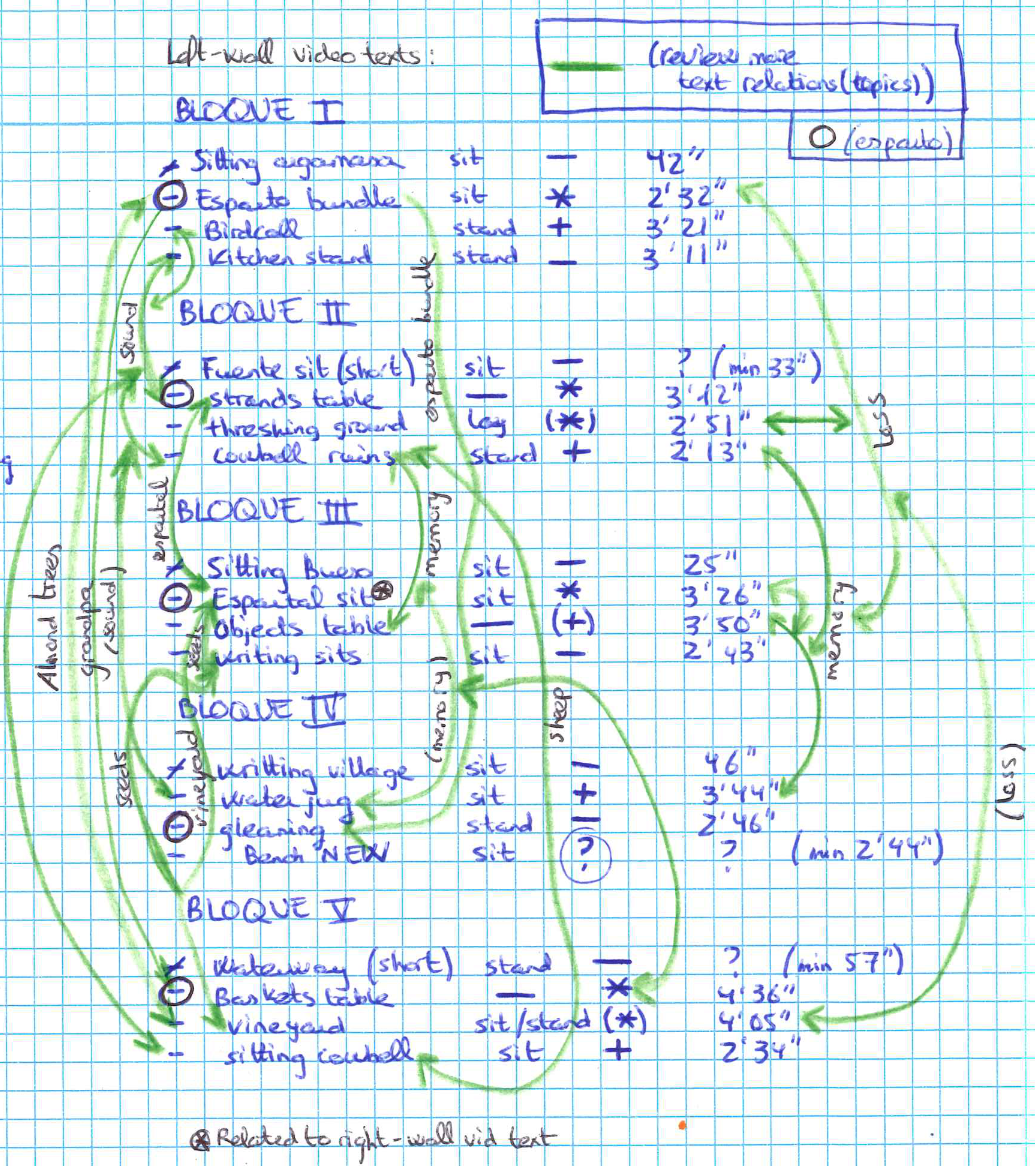 Left-wall video texts:
(review more
text relations (topics))
O (esparto)
BLOQUE I
Sitting argamasa sit — 42"
- Esparto bundle sit * 2'32"
- Birdcall stand + 3'21"
- Kitchen stand stand — 3'11"
BLOQUE II
Fuente sit (short) sit — ? (min 33")
- strands table — * 3'12"
- threshing ground lay (*) 2'51"
- cowbell ruins stand + 2'13"
BLOQUE III
Sitting Bueso sit — 25"
- Espartal sit ⊛ sit * 3'26"
- Objects table — (+) 3'50"
- writing sits sit — 2'43"
BLOQUE IV
writting village sit — 46"
- water jug sit + 3'44"
- gleaning stand — 2'46"
- Bench NEW sit ? ? (min 2'44")
BLOQUE V
Waterway (short) stand — ? (min 57")
- Baskets table — * 4'36"
- vineyard sit/stand (*) 4'05"
- sitting cowbell sit + 2'34"
⊛ Related to right-wall vid text
sound
esparto bundle
Loss
g
espartal
memory
Almond trees
grandpa
(sound)
seeds
memory
(memory)
sheep
vineyard
seeds
(loss)